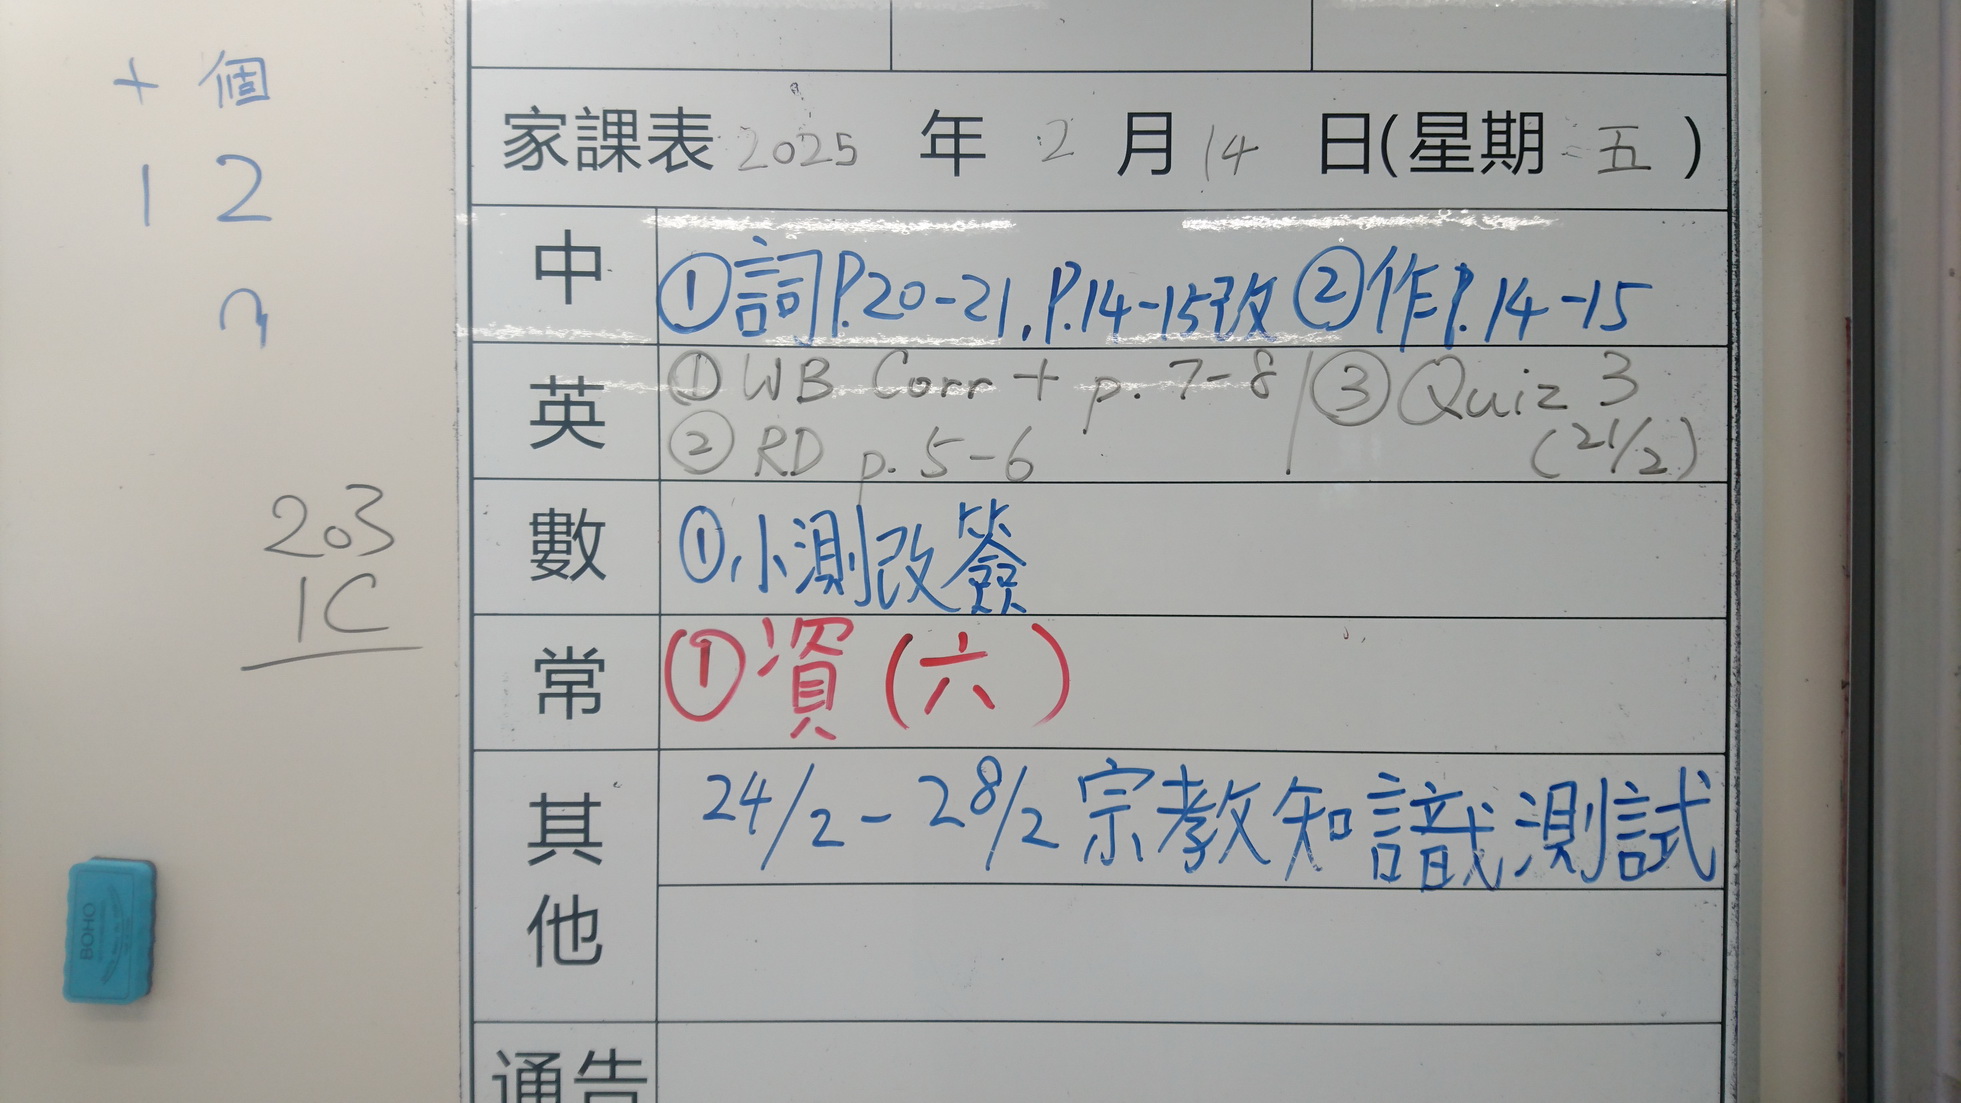 十 個
1 2
203
1C
BOHO
家課表 2025 年 2 月 14 日(星期 五 )
中 ①詞P.20-21, P.14-15改 ②作P.14-15
英 ① WB Corr + p. 7-8 / ③ Quiz 3
② RD p. 5-6 (21/2)
數 ①小測改簽
常 ①資(六)
其他 24/2 - 28/2 宗教知識測試
通告